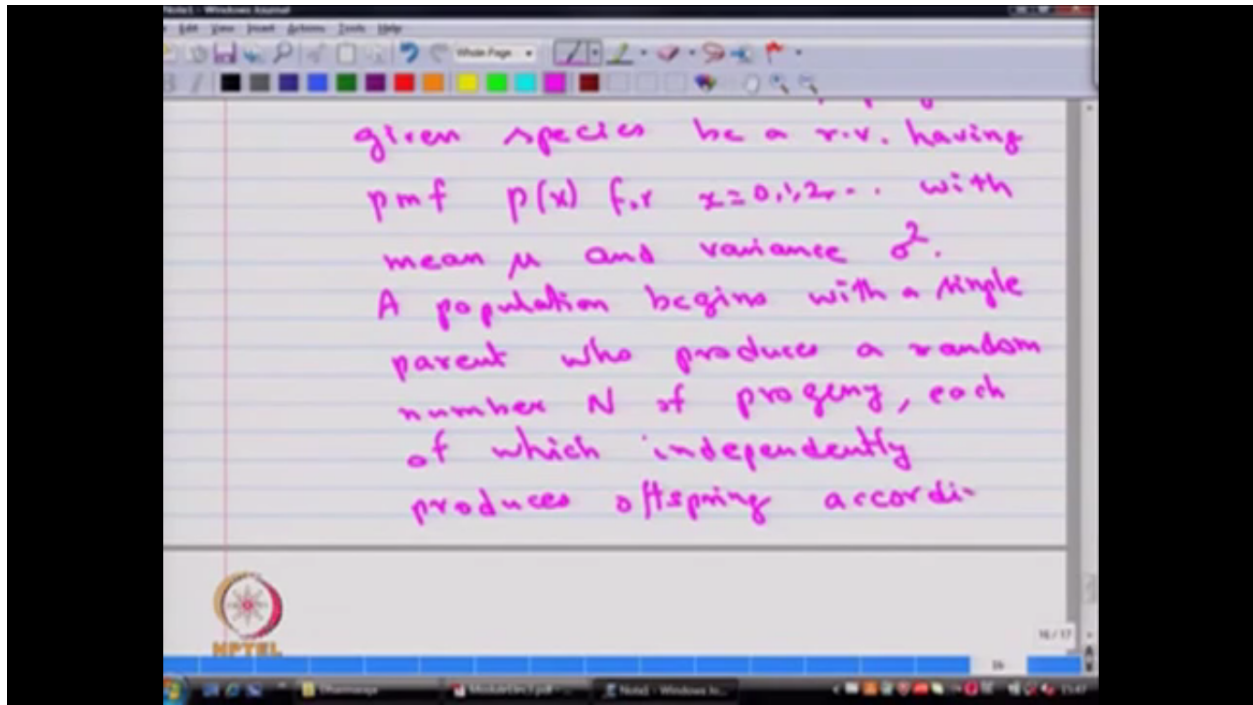 Note1 - Windows Journal
Edit View Insert Actions Tools Help
Whole Page
given species be a r.v. having
pmf p(x) for x=0,1,2,... with
mean μ and variance σ².
A population begins with a single
parent who produces a random
number N of progeny, each
of which independently
produces offspring accordi
NPTEL
16 / 17
Dharmaraja
Note1 - Windows Jo...